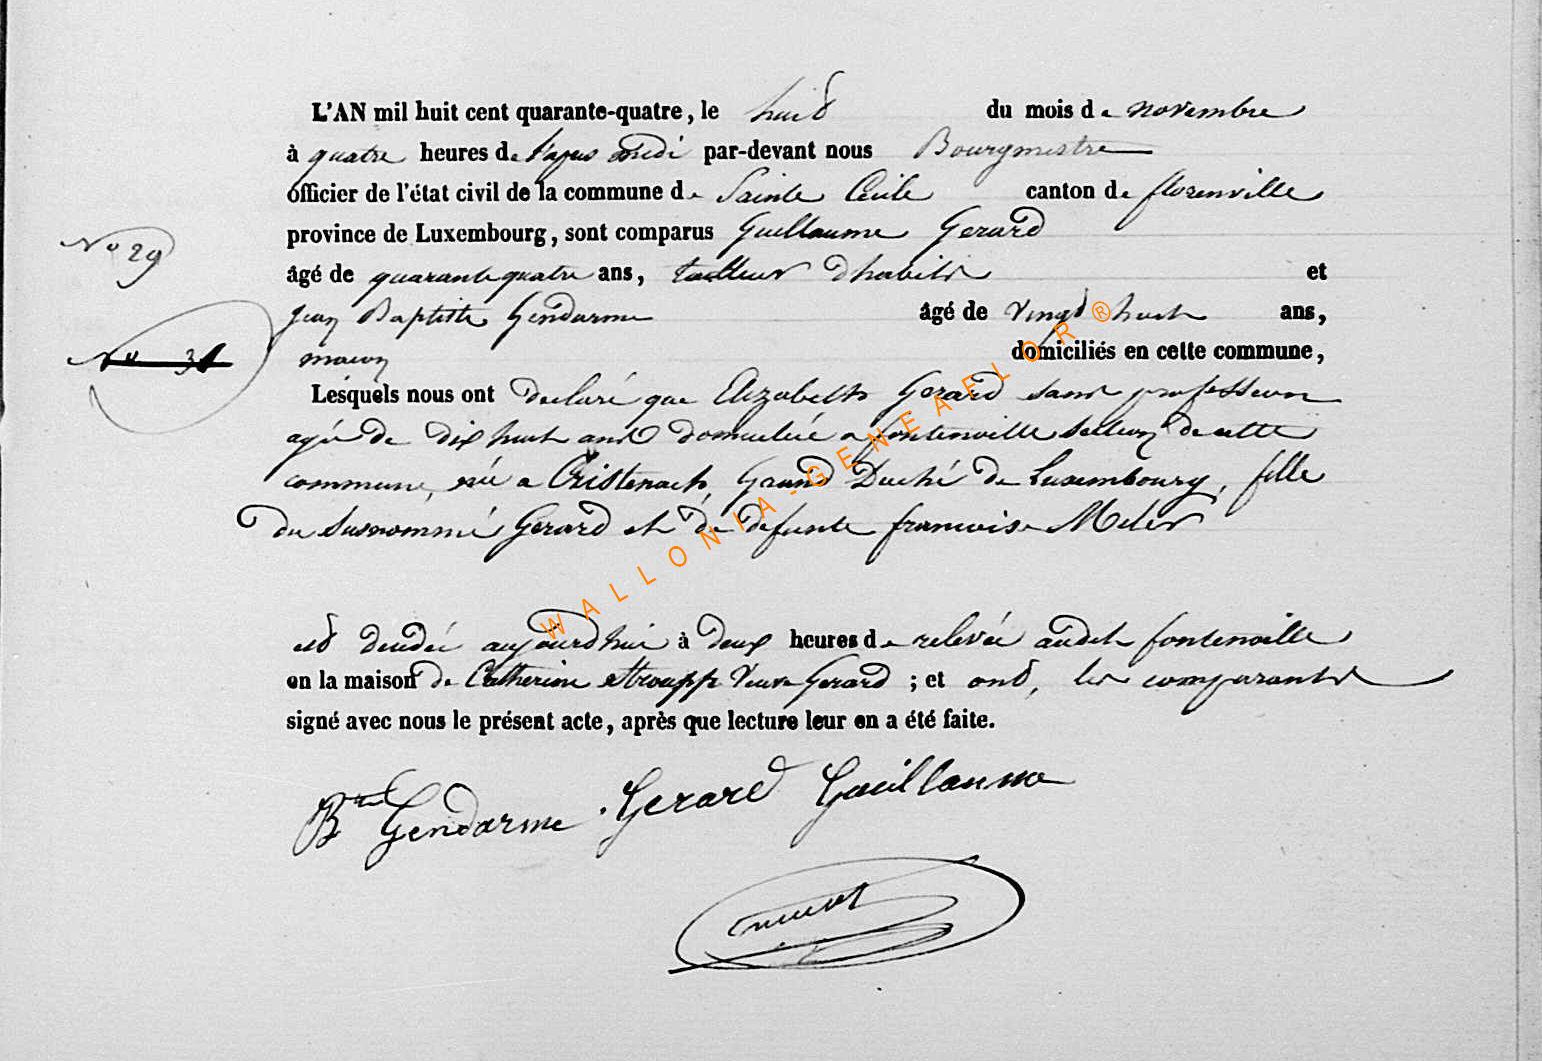 L'AN mil huit cent quarante-quatre, le huit du mois de novembre
à quatre heures de l'apres midi par-devant nous Bourgmestre
officier de l'état civil de la commune de Sainte Cecile canton de florenville
N° 29
province de Luxembourg, sont comparus Guillaume Gerard
âgé de quarante quatre ans, tailleur d'habits et
Jean Baptiste Gendarme âgé de vingt huit ans,
N° 31
macon domiciliés en cette commune,
Lesquels nous ont declaré que Elizabeth Gerard sans profession
agée de dix huit ans domiciliée a fontenoille section de cette
commune, née a Cristenach, Grand Duché de Luxembourg, fille
du susnommé Gerard et de defunte francoise
est decedée aujourd'hui à deux heures de relevée audit fontenoille
en la maison de Catherine Stroupp Veuve Gerard ; et ont, les comparants
signé avec nous le présent acte, après que lecture leur en a été faite.
Bte Gendarme Gerard Guillaume
WALLONIA-GENEAFLOR®